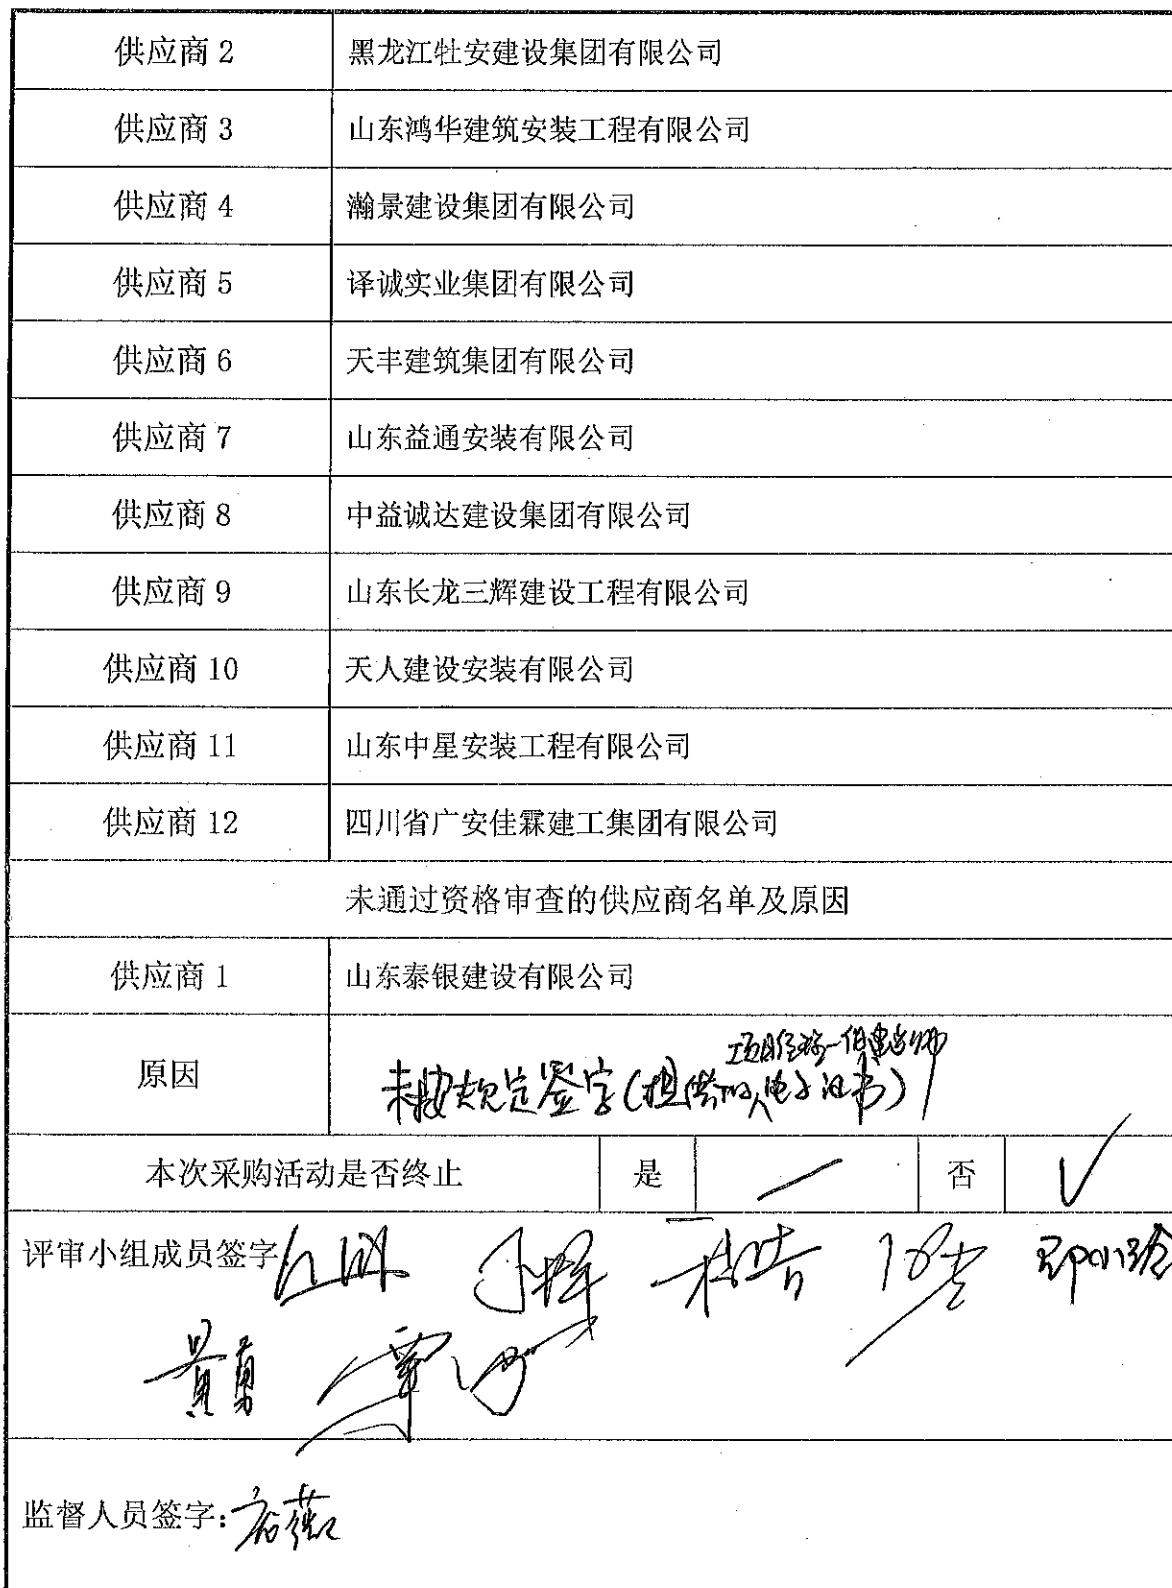 供应商 2 黑龙江牡安建设集团有限公司
供应商 3 山东鸿华建筑安装工程有限公司
供应商 4 瀚景建设集团有限公司
供应商 5 译诚实业集团有限公司
供应商 6 天丰建筑集团有限公司
供应商 7 山东益通安装有限公司
供应商 8 中益诚达建设集团有限公司
供应商 9 山东长龙三辉建设工程有限公司
供应商 10 天人建设安装有限公司
供应商 11 山东中星安装工程有限公司
供应商 12 四川省广安佳霖建工集团有限公司
未通过资格审查的供应商名单及原因
供应商 1 山东泰银建设有限公司
原因 未按规定签字(提供的电子证书)
本次采购活动是否终止 是 否 ✓
评审小组成员签字
监督人员签字: